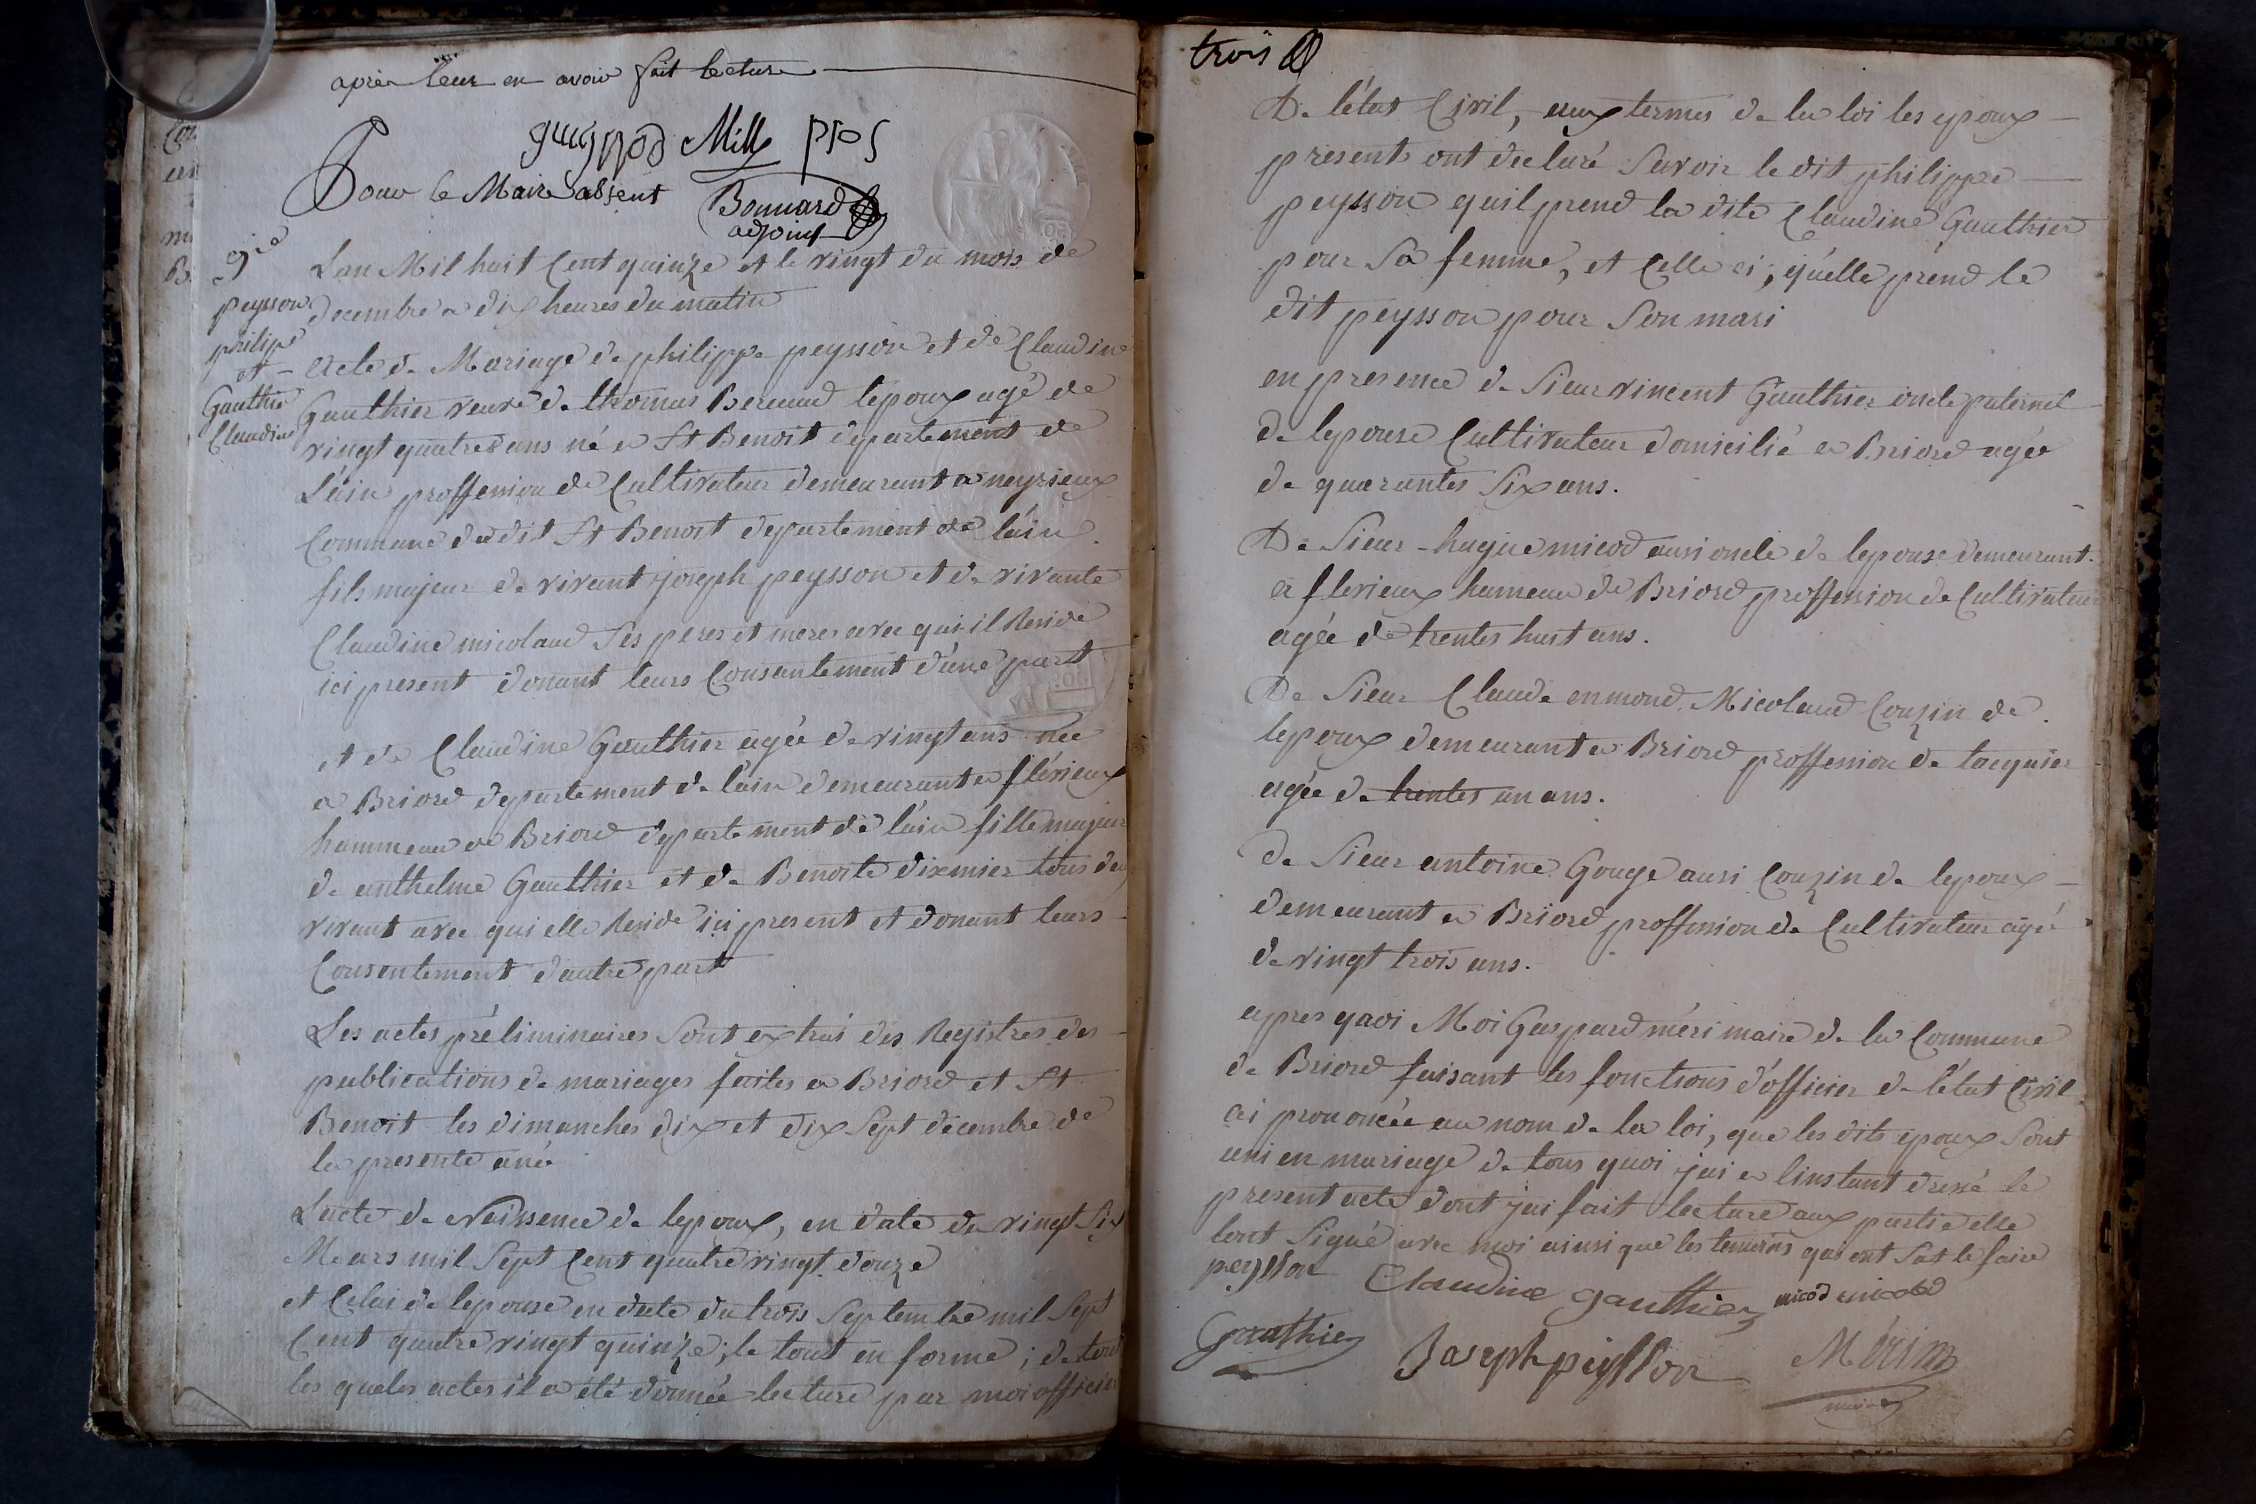 après leur en avoir fait lecture
guiggod Mill
Pour le Maire absent Bonnard
adjoint
peysson
philipe
et
Gauthie
Claudine
Lan Mil huit Cent quinze et le vingt du mois de
decembre a dix heures du matin
Acte de Mariage de philippe peysson et de Claudine
Gauthier veuve de thomas Bernaud lepoux agé de
vingt quatres ans né a St Benoit departement de
L'ain proffession de Cultivateur demeurant a neyrieux
Commune du dit St Benoit departement de l'ain
fils majeur de vivant joseph peysson et de vivante
Claudine micolaud ses peres et meres avec qui il Reside
ici present donant leurs Consentement d'une part
et de Claudine Gauthier agée de vingt ans née
a Briord departement de l'ain demeurant a flévieux
hammeau de Briord departement de l'ain fille majeur
de anthelme Gauthier et de Benoite dixmier tous deux
vivant avec qui elle Reside ici present et donant leurs
Consentement d'autre part
Les actes préliminaires sont extrai des Registres des
publications de mariages faites a Briord et St
Benoit les dimanches dix et dix sept decembre de
la presente ané
L'acte de Naissence de lepoux, en date du vingt six
Mars mil sept Cent quatre vingt douze
et Celui de lepouse en date du trois septembre mil sept
Cent quatre vingt quinze; le tout en forme; de tout
les queles actes il a été donnée lecture par moi officier
trois
De l'état Civil, aux termes de la loi les epoux
present ont declaré savoir le dit philippe
peysson quil prend la dite Claudine Gauthier
pour sa femme, et Celle ci, qu'elle prend le
dit peysson pour son mari
en presence de sieur vincent Gauthier oncle paternel
de lepouse Cultivateur domicilié a Briord agée
de quarantes six ans.
De sieur hugue micod ausi oncle de lepouse demeurant
a flevieux hameau de Briord proffession de Cultivateur
agée de trentes huit ans.
De sieur Claude enmond Micolaud Couzin de
lepoux demeurant a Briord proffession de taquier
agée de trentes un ans.
de sieur antoine Gouge ausi Couzin de lepoux
demeurant a Briord proffession de Cultivateur agé
de vingt trois ans.
apres quoi Moi Gaspard méri maire de la Commune
de Briord faisant les fonctions d'officier de l'état Civil
ai prononcée au nom de la loi, que les dits époux sont
uni en mariage de tous quoi jai a linstant dressé le
present acte dont jai fait lecture aux partie elle
lont signé avec moi ainsi que les temoins qui ont sut le faire
peysson Claudine gauthier micod
Gauthier Joseph peysson Mérim
maire